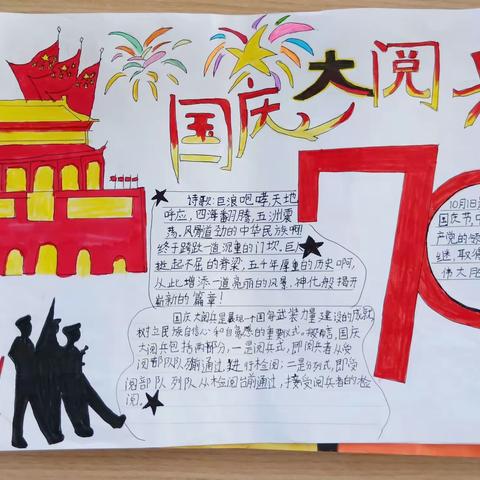 国庆大阅兵
70
诗歌:巨浪咆哮,天地
呼应,四海翻腾,五洲震
荡,风雷激动的中华民族啊
终于跨跃一道沉重的门坎,巨人
挺起不屈的脊梁,五千年厚重的历史啊,
从此增添一道亮丽的风景,神化般揭开
崭新的篇章!
国庆大阅兵是展现一个国家武装力量建设的成就,
树立民族自信心和自豪感的重要仪式。按照,国庆
大阅兵包括两部分,一是阅兵式,即阅兵者从受
阅部队队列前通过,进行检阅;二是分列式,即受
阅部队列队从检阅台前通过,接受阅兵者的检
阅。
10月1日
国庆节,中
产党的领
继,取得
伟大成